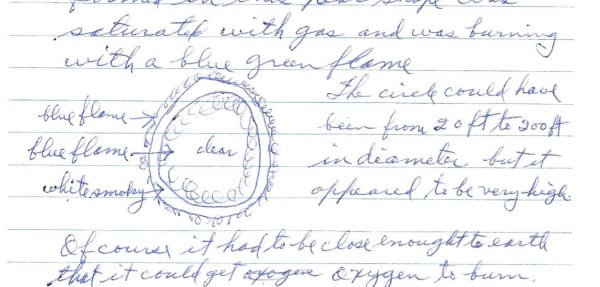 saturated with gas and was burning
with a blue green flame
The circle could have
blue flame
been from 20 ft to 200 ft
blue flame
clear
in diameter but it
white smoky
appeared to be very high
Of course it had to be close enought to earth
that it could get oxogen oxygen to burn.